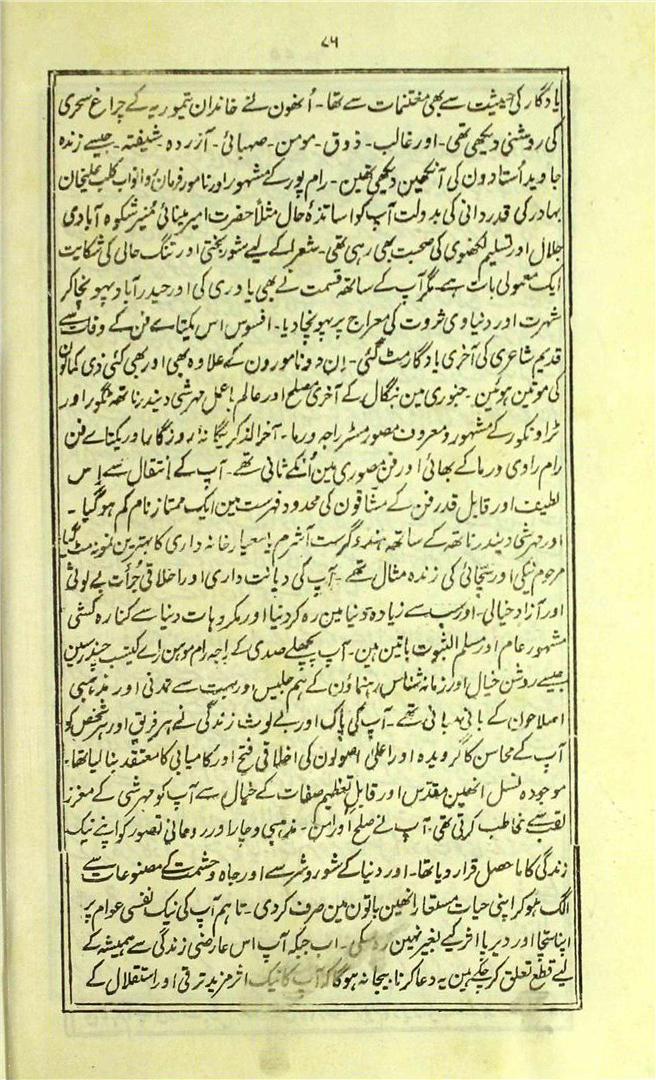 ۷۵
یادگار کی حیثیت سے بھی مغتنمات سے تھا۔ اُنھون نے خاندان تیموریہ کے چراغ سحری
کی روشنی دیکھی تھی۔ اور غالب۔ ذوق۔ مومن۔ صہبائی۔ آزردہ۔ شیفتہ۔ جیسے زندہ
جاوید اُستادون کی آنکھین دیکھی تھین۔ رام پور کے مشہور اور نامور فرمان روا نواب کلب علیخان
بہادر کی قدردانی کی بدولت آپ کو اساتذۂ حال مثلاً حضرت امیر مینائی منیر شکوہ آبادی
جلال اور تسلیم لکھنوی کی صحبت بھی رہی تھی۔ شعرا کے لیے شور بختی اور تنگ حالی کی شکایت
ایک معمولی بات ہے۔ مگر آپ کے ساتھ قسمت نے بھی یاوری کی اور حیدرآباد پہونچا کر
شہرت اور دنیاوی ثروت کی معراج پر پہونچا دیا۔ افسوس اس یکتاے فن کے وفات سے
قدیم شاعری کی آخری یادگار مٹ گئی۔ اِن دو نامورون کے علاوہ بھی اور بھی کئی ذی کمالون
کی موتین ہوئین۔ جنوری مین بنگال کے آخری مصلح اور عالم باعمل مہرشی دیندرناتھ ٹگور اور
ٹراونکور کے مشہور و معروف مصور مسٹر راجہ ورما۔ آخرالذکر یگانۂ روزگار اور یکتاے فن
رام راوی ورما کے بھائی اور فن مصوری مین اُنکے ثانی تھے۔ آپ کے انتقال سے اِس
لطیف اور قابل قدر فن کے مشاقون کی محدود فہرست مین ایک ممتاز نام کم ہو گیا۔
اور مہرشی دیندرناتھ کے ساتھ ہندو گرہست آشرم یا معیار خانہ داری کا بہترین نمونہ مٹ گیا
مرحوم نیکی اور سچائی کی زندہ مثال تھے۔ آپ کی دیانت داری اور اخلاقی جُرأت بے لوثی
اور آزاد خیالی۔ اور سب سے زیادہ دنیا مین رہ کر دنیا اور مکروہات دنیا سے کنارہ کشی
مشہور عام اور مسلم الثبوت باتین ہین۔ آپ پچھلے صدی کے راجہ رام موہن راے کیشب چندر سین
جیسے روشن خیال اور زمانہ شناس رہنماؤن کے ہم جلیس اور بہت سے تمدنی اور مذہبی
اصلاحون کے بانی مبانی تھے۔ آپ کی پاک اور بے لوث زندگی نے ہر فریق اور ہر شخص کو
آپ کے محاسن کا گرویدہ اور اعلیٰ اصولون کی اخلاقی فتح اور کامیابی کا معتقد بنا لیا تھا۔
موجودہ نسل انھین مقدس اور قابل تعظیم صفات کے خیال سے آپ کو مہرشی کے معزز
لقب سے مخاطب کرتی تھی۔ آپ نے صلح اور امن۔ مذہبی وچار اور روحانی تصور کو اپنے نیک
زندگی کا ماحصل قرار دیا تھا۔ اور دنیا کے شور و شر سے اور جاہ و حشمت کے مصنوعات سے
الگ ہو کر اپنی حیات مستعار انھین باتون مین صرف کر دی۔ تاہم آپ کی نیک نفسی عوام پر
اپنا سچا اور دیرپا اثر کیے بغیر نہین رہ سکی۔ اب جبکہ آپ اس عارضی زندگی سے ہمیشہ کے
لیے قطع تعلق کر چکے ہین یہ دعا کرنا بیجا نہ ہوگا کہ آپ کا نیک اثر مزید ترقی اور استقلال کے